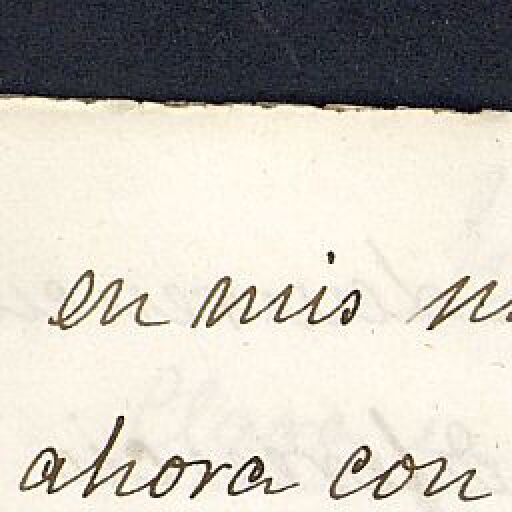 en mis
ahora con